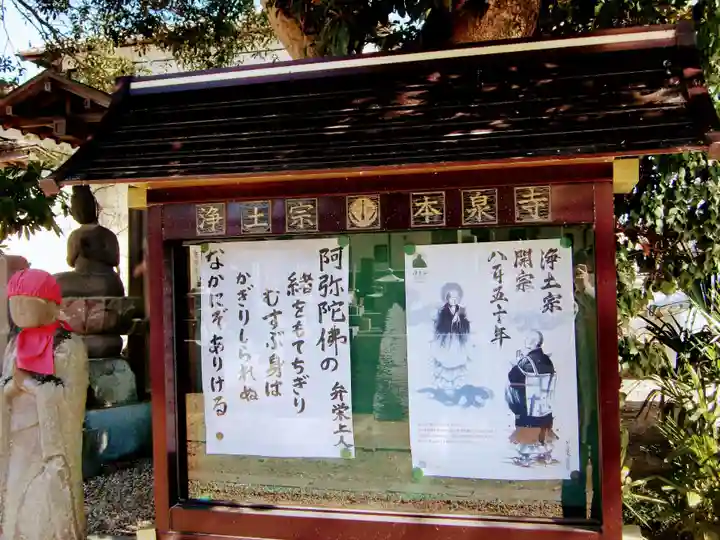 浄土宗 本泉寺
阿弥陀佛の
緒をもてちぎり
むすぶ身は
かぎりしられぬ
なかにぞありける
弁栄上人
浄土宗
開宗
八百五十年